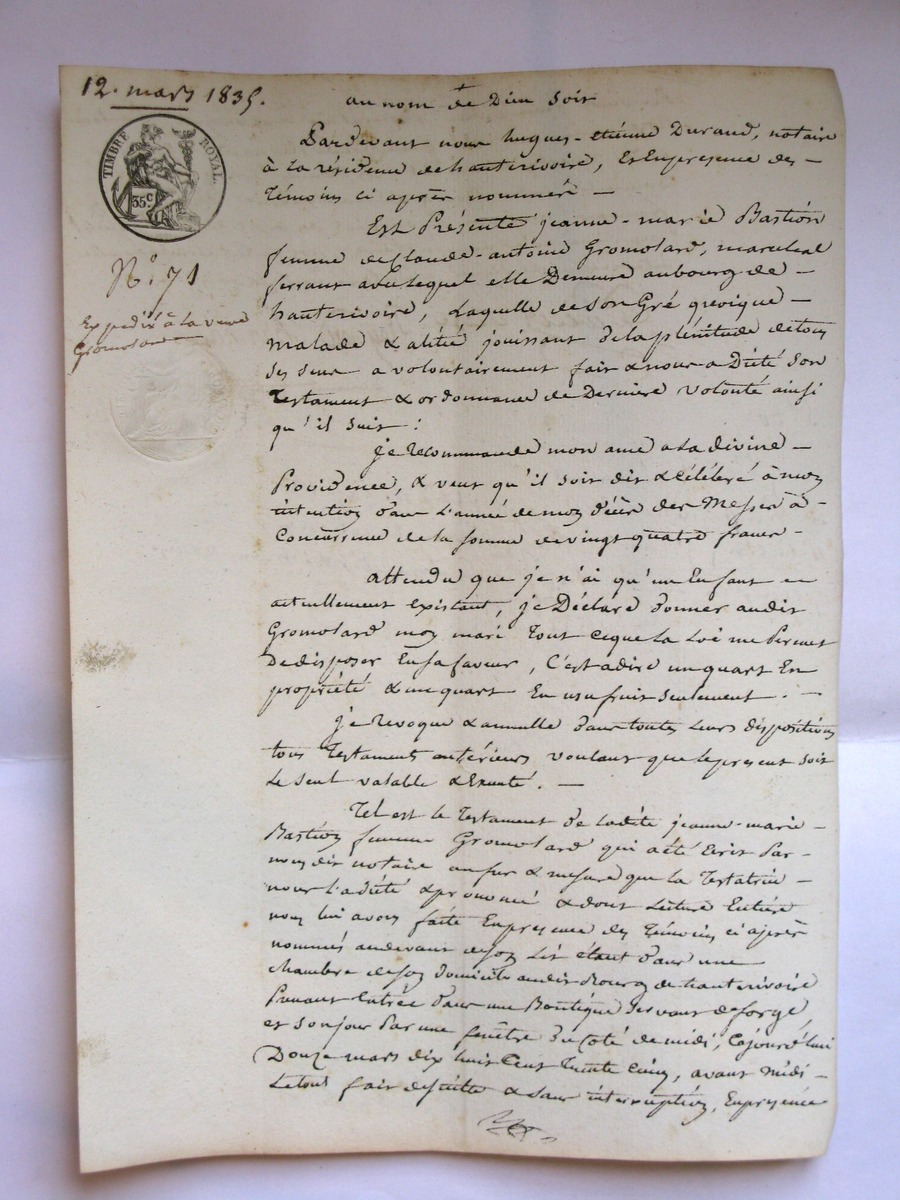 12. mars 1835.
au nom de Dieu soit
TIMBRE ROYAL
35c
N.° 71
Expedié à la veuve
Gromolard
Pardevant nous hugues-etienne Durand, notaire
à la résidence de hauterivoire, Et En presence des
témoins ci après nommés
Est Présente jeanne-marie Bastion
femme de Claude-antoine Gromolard, marechal
ferrant avec lequel elle Demeure au bourg de
hauterivoire, Laquelle de son Gré quoique
malade & alitée jouissant de la plénitude de tous
ses sens a volontairement fait & nous a Dicté son
Testament & ordonnance de Derniere volonté ainsi
qu'il suit :
je recommande mon ame a la divine
Providence, & veut qu'il soit dit & célébré à mon
intention dans L'année de mon décès des Messes à
Concurrence de la somme de vingt quatre francs
attendu que je n'ai qu'un Enfant
actuellement existant, je Déclare donner audit
Gromolard mon mari tout ce que La Loi me Permet
De disposer En sa faveur, C'est a dire un quart En
propriété & un quart En usufruit seulement.
je revoque & annulle dans toutes Leurs dispositions
tous Testaments antérieurs voulant que le present soit
Le seul valable & Executé.
Tel est le Testament de ladite jeanne-marie
Bastion femme Gromolard qui a été Ecrit Par
nous dit notaire au fur & mesure que la Testatrice
nous l'a dicté & prononcé & dont Lecture Entière
nous lui avons faite En presence des témoins ci après
nommés au devant de son Lit étant dans une
chambre de son domicile audit Bourg de hauterivoire
Prenant Entrée dans une Boutique servant de forge,
et son jour Par une fenêtre du Coté de midi, Cejourd'hui
Douze mars dix huit Cent Trente Cinq, avant Midi
Le tout fait de suite & sans interruption, En presence